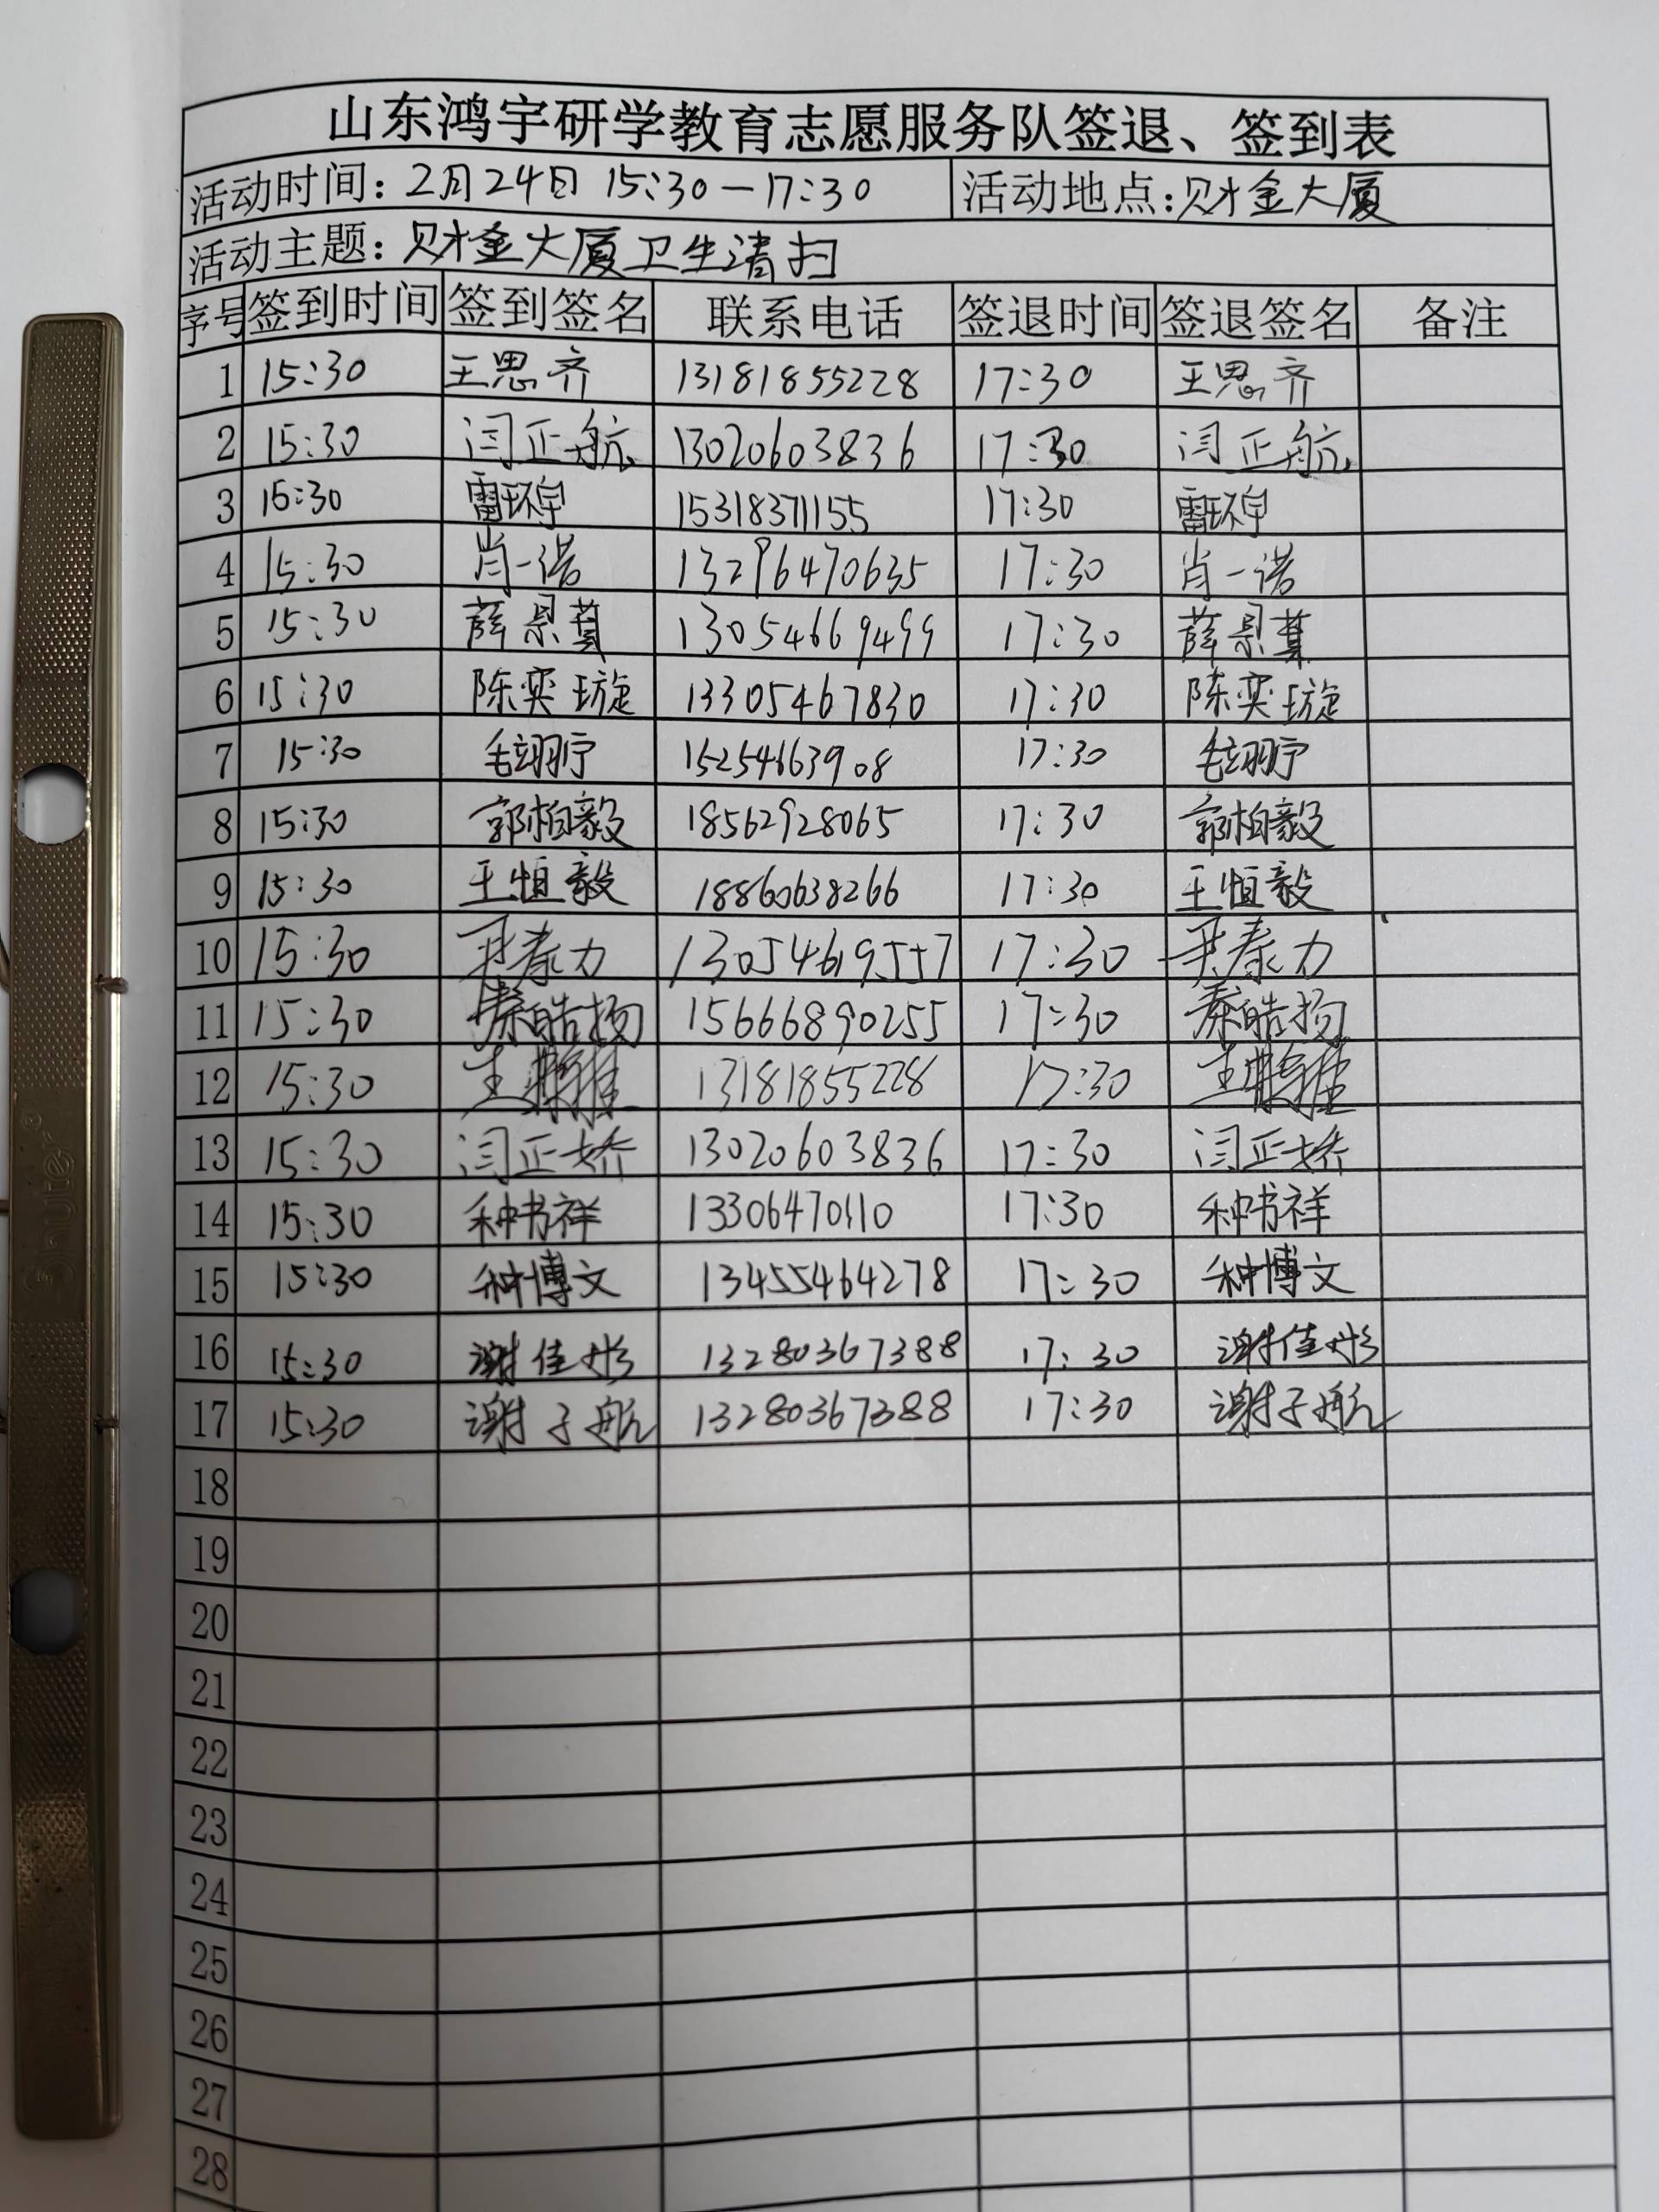 山东鸿宇研学教育志愿服务队签退、签到表
活动时间：2月24日 15:30—17:30 活动地点：财金大厦
活动主题：财金大厦卫生清扫
序号 签到时间 签到签名 联系电话 签退时间 签退签名 备注
1 15:30 王思齐 13181855228 17:30 王思齐
2 15:30 闫正航 13020603836 17:30 闫正航
3 15:30 雷环宇 15318371155 17:30 雷环宇
4 15:30 肖一诺 13296470635 17:30 肖一诺
5 15:30 薛景萁 13054669499 17:30 薛景萁
6 15:30 陈奕璇 13305467830 17:30 陈奕璇
7 15:30 毛翊宁 15254663908 17:30 毛翊宁
8 15:30 郭柏毅 18562928065 17:30 郭柏毅
9 15:30 王恒毅 18860638266 17:30 王恒毅
10 15:30 13054619557 17:30
11 15:30 秦皓扬 15666890255 17:30 秦皓扬
12 15:30 13181855228 17:30
13 15:30 闫正娇 13020603836 17:30 闫正娇
14 15:30 种书祥 13306470110 17:30 种书祥
15 15:30 种博文 13455464278 17:30 种博文
16 15:30 谢佳彤 13280367388 17:30 谢佳彤
17 15:30 谢子航 13280367388 17:30 谢子航
18
19
20
21
22
23
24
25
26
27
28